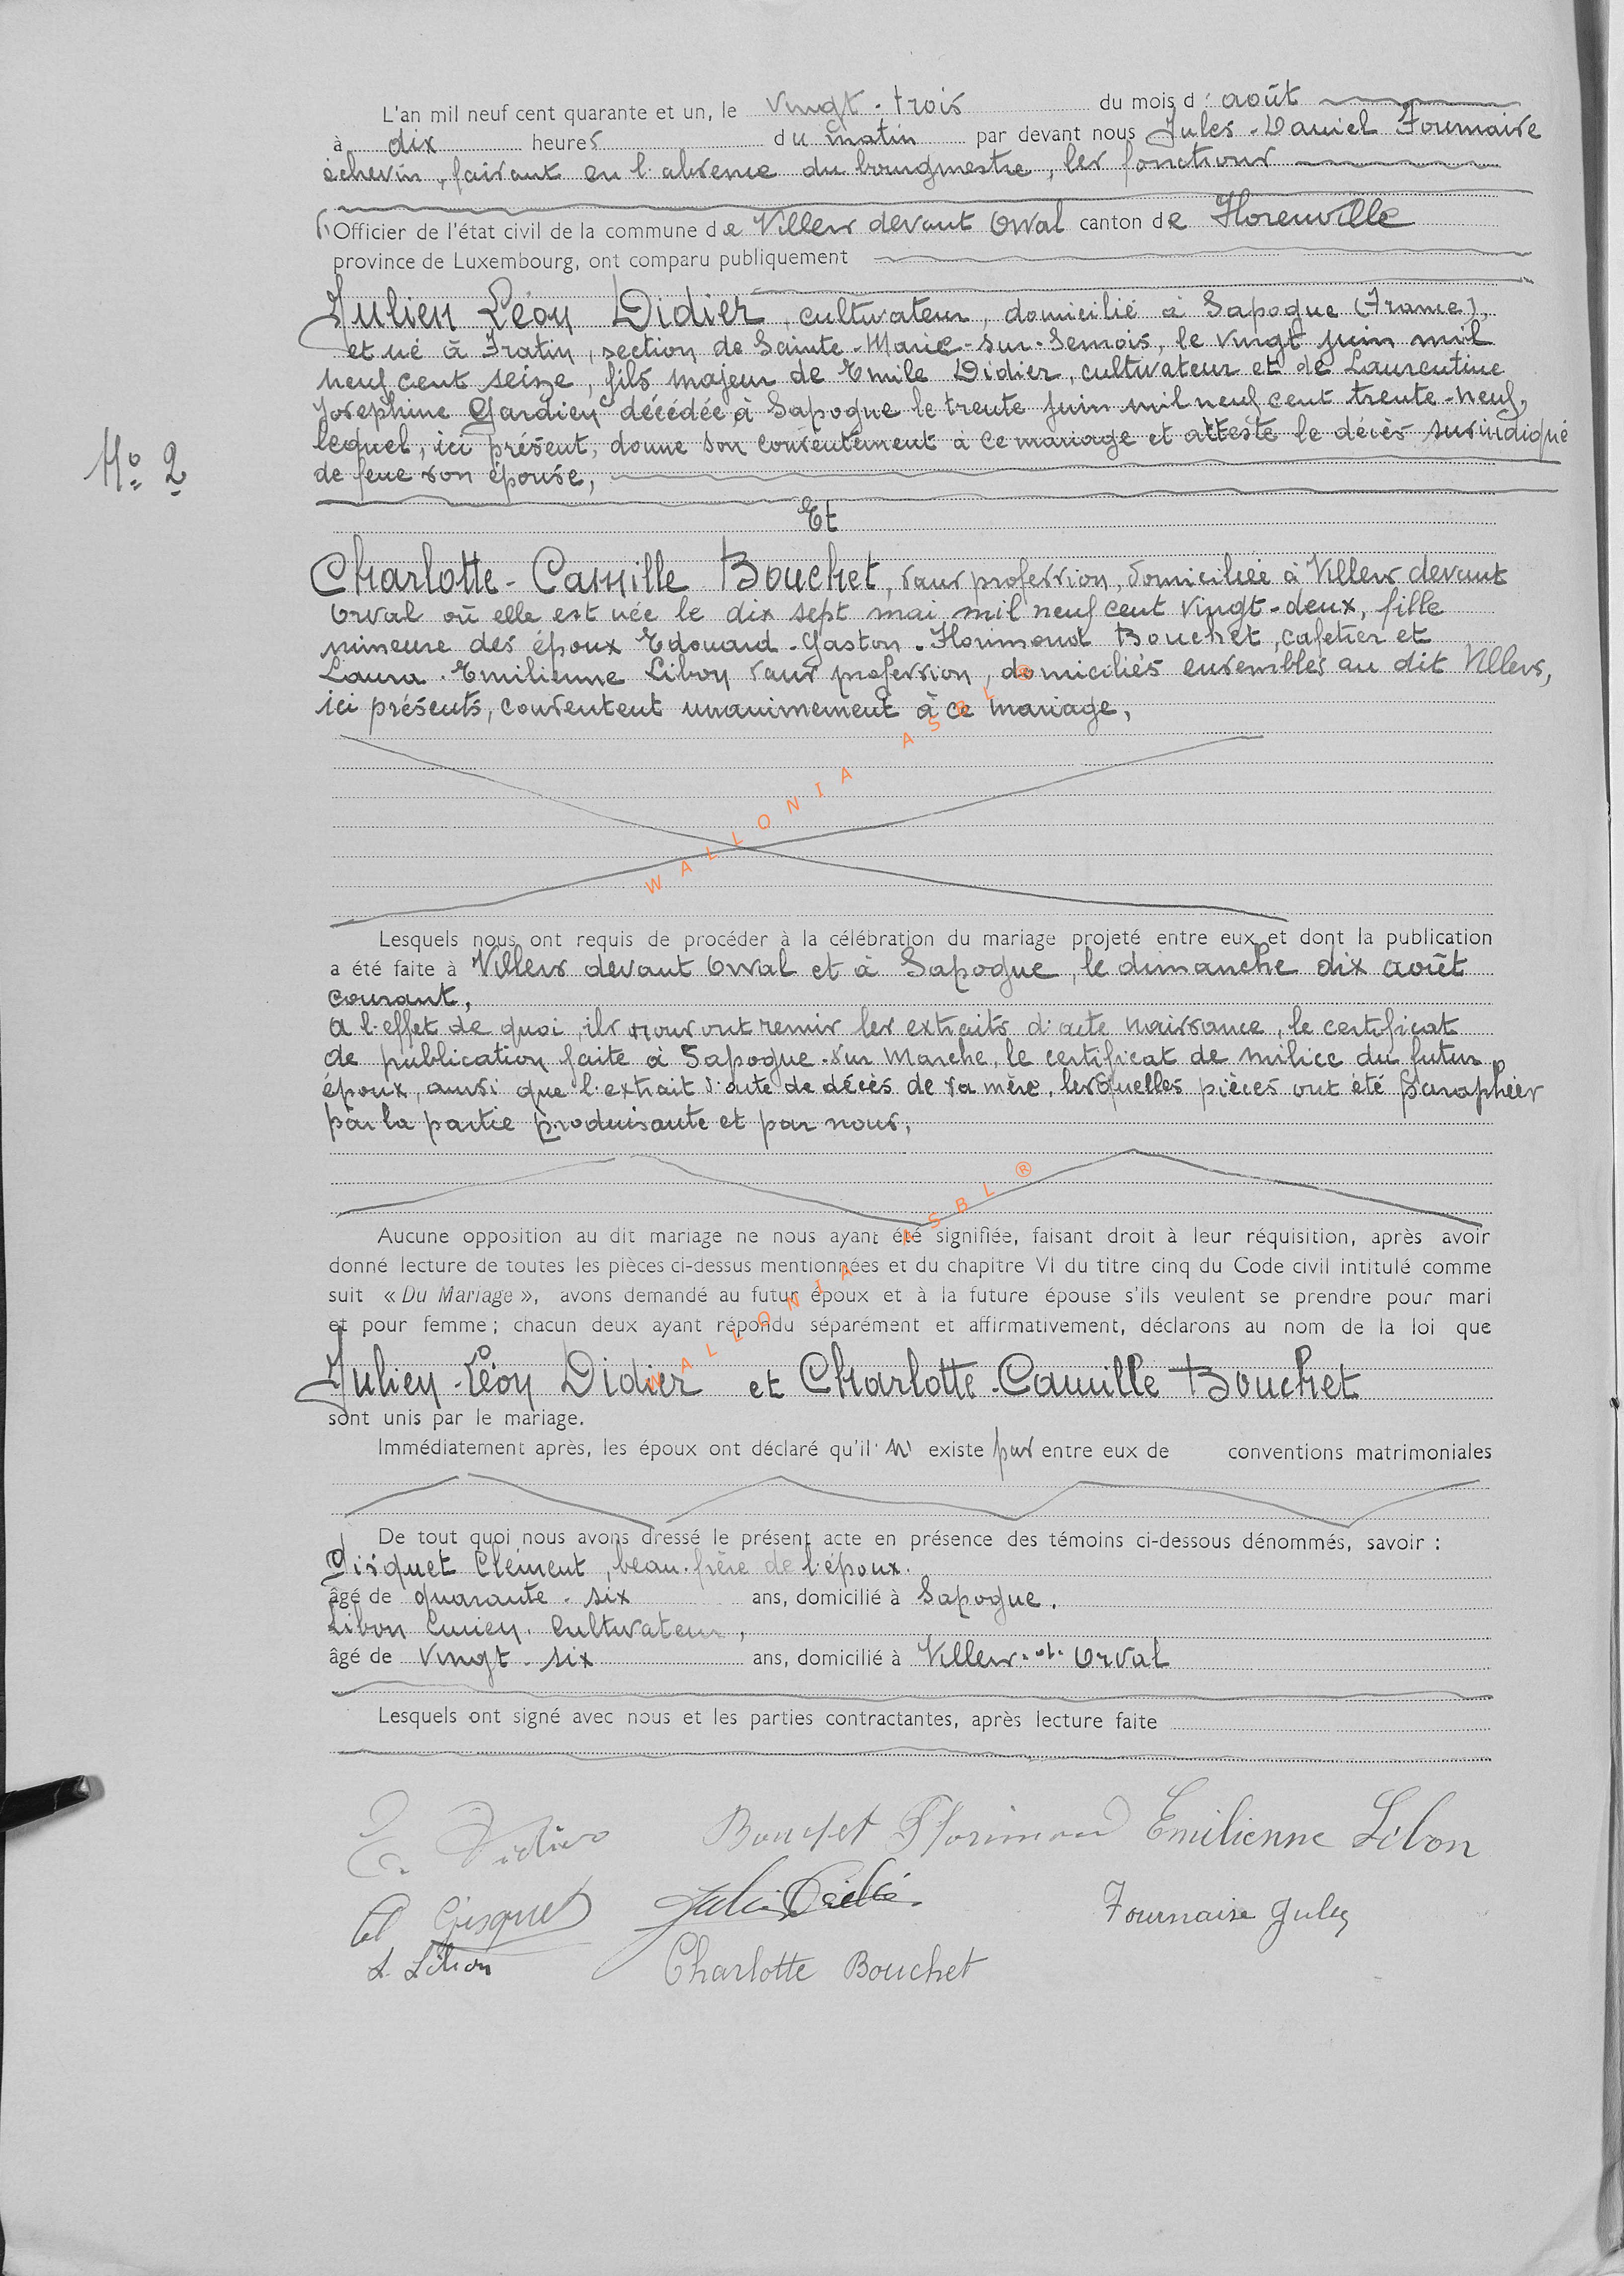 L'an mil neuf cent quarante et un, le vingt-trois du mois d'août
à dix heures du matin par devant nous Jules-Daniel Fournaise
échevin, faisant en l'absence du bourgmestre, les fonctions
Officier de l'état civil de la commune de Villers devant Orval canton de Florenville
province de Luxembourg, ont comparu publiquement
Julien Léon Didier, cultivateur, domicilié à Sapogne (France),
et né à Fratin, section de Sainte-Marie-sur-Semois, le vingt juin mil
neuf cent seize, fils majeur de Emile Didier, cultivateur et de Laurentine
Josephine Gardien décédée à Sapogne le trente juin mil neuf cent trente-neuf,
lequel, ici présent, donne son consentement à ce mariage et atteste le décès susindiqué
de feue son épouse,
No 2
Et
Charlotte-Camille Bouchet, sans profession, domiciliée à Villers devant
Orval où elle est née le dix sept mai mil neuf cent vingt-deux, fille
mineure des époux Edouard-Gaston-Florimond Bouchet, cafetier et
Laura-Emilienne Libon sans profession, domiciliés ensembles au dit Villers,
ici présents, consentent unanimement à ce mariage,
WALLONIA ASBL ®
Lesquels nous ont requis de procéder à la célébration du mariage projeté entre eux et dont la publication
a été faite à Villers devant Orval et à Sapogne, le dimanche dix août
courant,
A l'effet de quoi, ils nous ont remis les extraits d'acte naissance, le certificat
de publication faite à Sapogne-sur Marche, le certificat de milice du futur
époux, ainsi que l'extrait d'acte de décès de sa mère, lesquelles pièces ont été paraphées
par la partie produisante et par nous,
WALLONIA ASBL ®
Aucune opposition au dit mariage ne nous ayant été signifiée, faisant droit à leur réquisition, après avoir
donné lecture de toutes les pièces ci-dessus mentionnées et du chapitre VI du titre cinq du Code civil intitulé comme
suit « Du Mariage », avons demandé au futur époux et à la future épouse s'ils veulent se prendre pour mari
et pour femme ; chacun deux ayant répondu séparément et affirmativement, déclarons au nom de la loi que
Julien-Léon Didier et Charlotte-Camille Bouchet
sont unis par le mariage.
Immédiatement après, les époux ont déclaré qu'il n'existe pas entre eux de conventions matrimoniales
De tout quoi nous avons dressé le présent acte en présence des témoins ci-dessous dénommés, savoir :
Gisquet Clément, beau-frère de l'époux.
âgé de quarante-six ans, domicilié à Sapogne.
Libon Lucien, Cultivateur,
âgé de vingt-six ans, domicilié à Villers-dt-Orval
Lesquels ont signé avec nous et les parties contractantes, après lecture faite
E. Didier Bouchet Florimond Emilienne Libon
Cl Gisquet Julien Didier Fournaise Jules
L. Libon Charlotte Bouchet